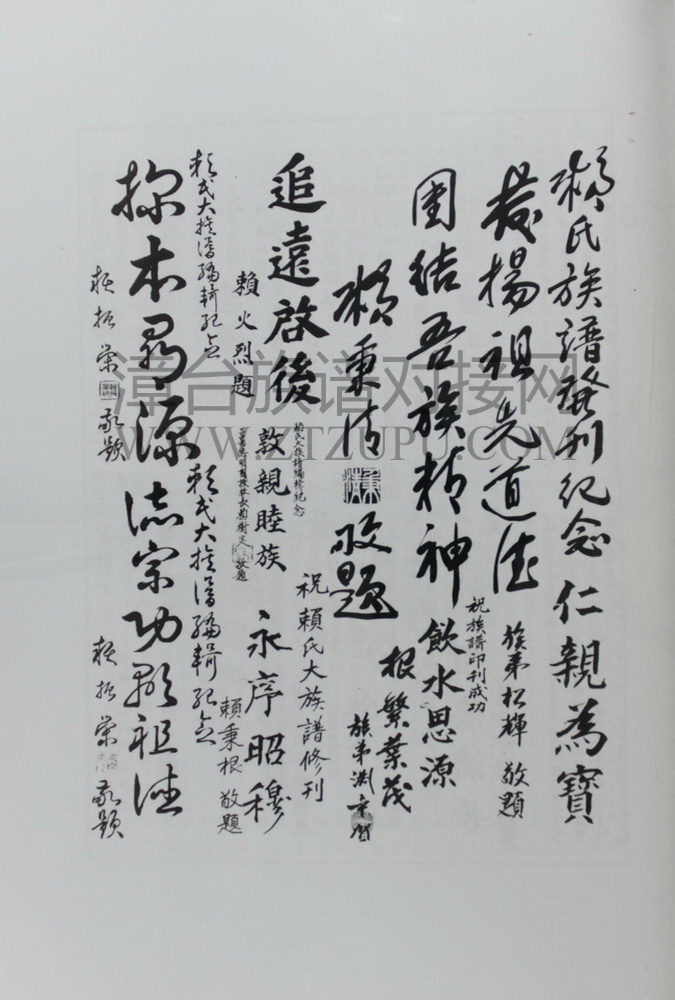 賴氏族譜發刊紀念
仁親為寶
族弟松輝 敬題
發揚祖先道德
團結吾族精神
賴秉清 敬題
祝族譜印刊成功
飲水思源
根繁葉茂
族弟渊章賀
追遠啓後
賴火烈題
賴氏大族譜編修紀念
敦親睦族
敬題
祝賴氏大族譜修刊
永序昭穆
賴秉根 敬題
賴氏大族譜編輯紀念
探本尋源
賴振榮 敬題
賴氏大族譜編輯紀念
誌宗功彰祖德
賴振榮 敬題
漳台族谱对接网
WWW.ZTZUPU.COM